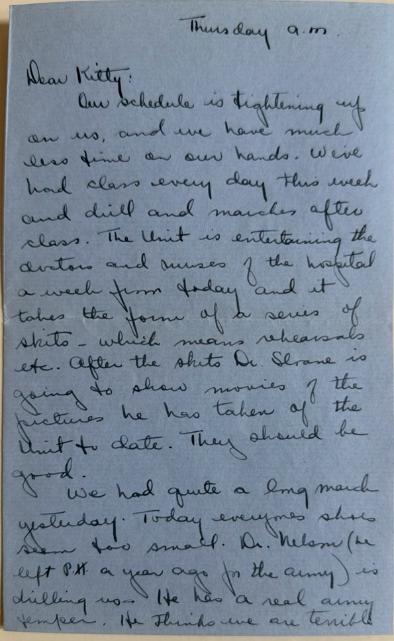 Thursday a.m.
Dear Kitty:
Our schedule is tightening up
on us, and we have much
less time on our hands. We've
had class every day this week
and drill and marches after
class. The Unit is entertaining the
doctors and nurses of the hospital
a week from today and it
takes the form of a series of
skits - which means rehearsals
etc. After the skits Dr. Sloane is
going to show movies of the
pictures he has taken of the
Unit to date. They should be
good.
We had quite a long march
yesterday. Today everyones shoes
seem too small. Dr. Nelson (he
left P.H. a year ago for the army) is
drilling us - He has a real army
temper. He thinks we are terrible